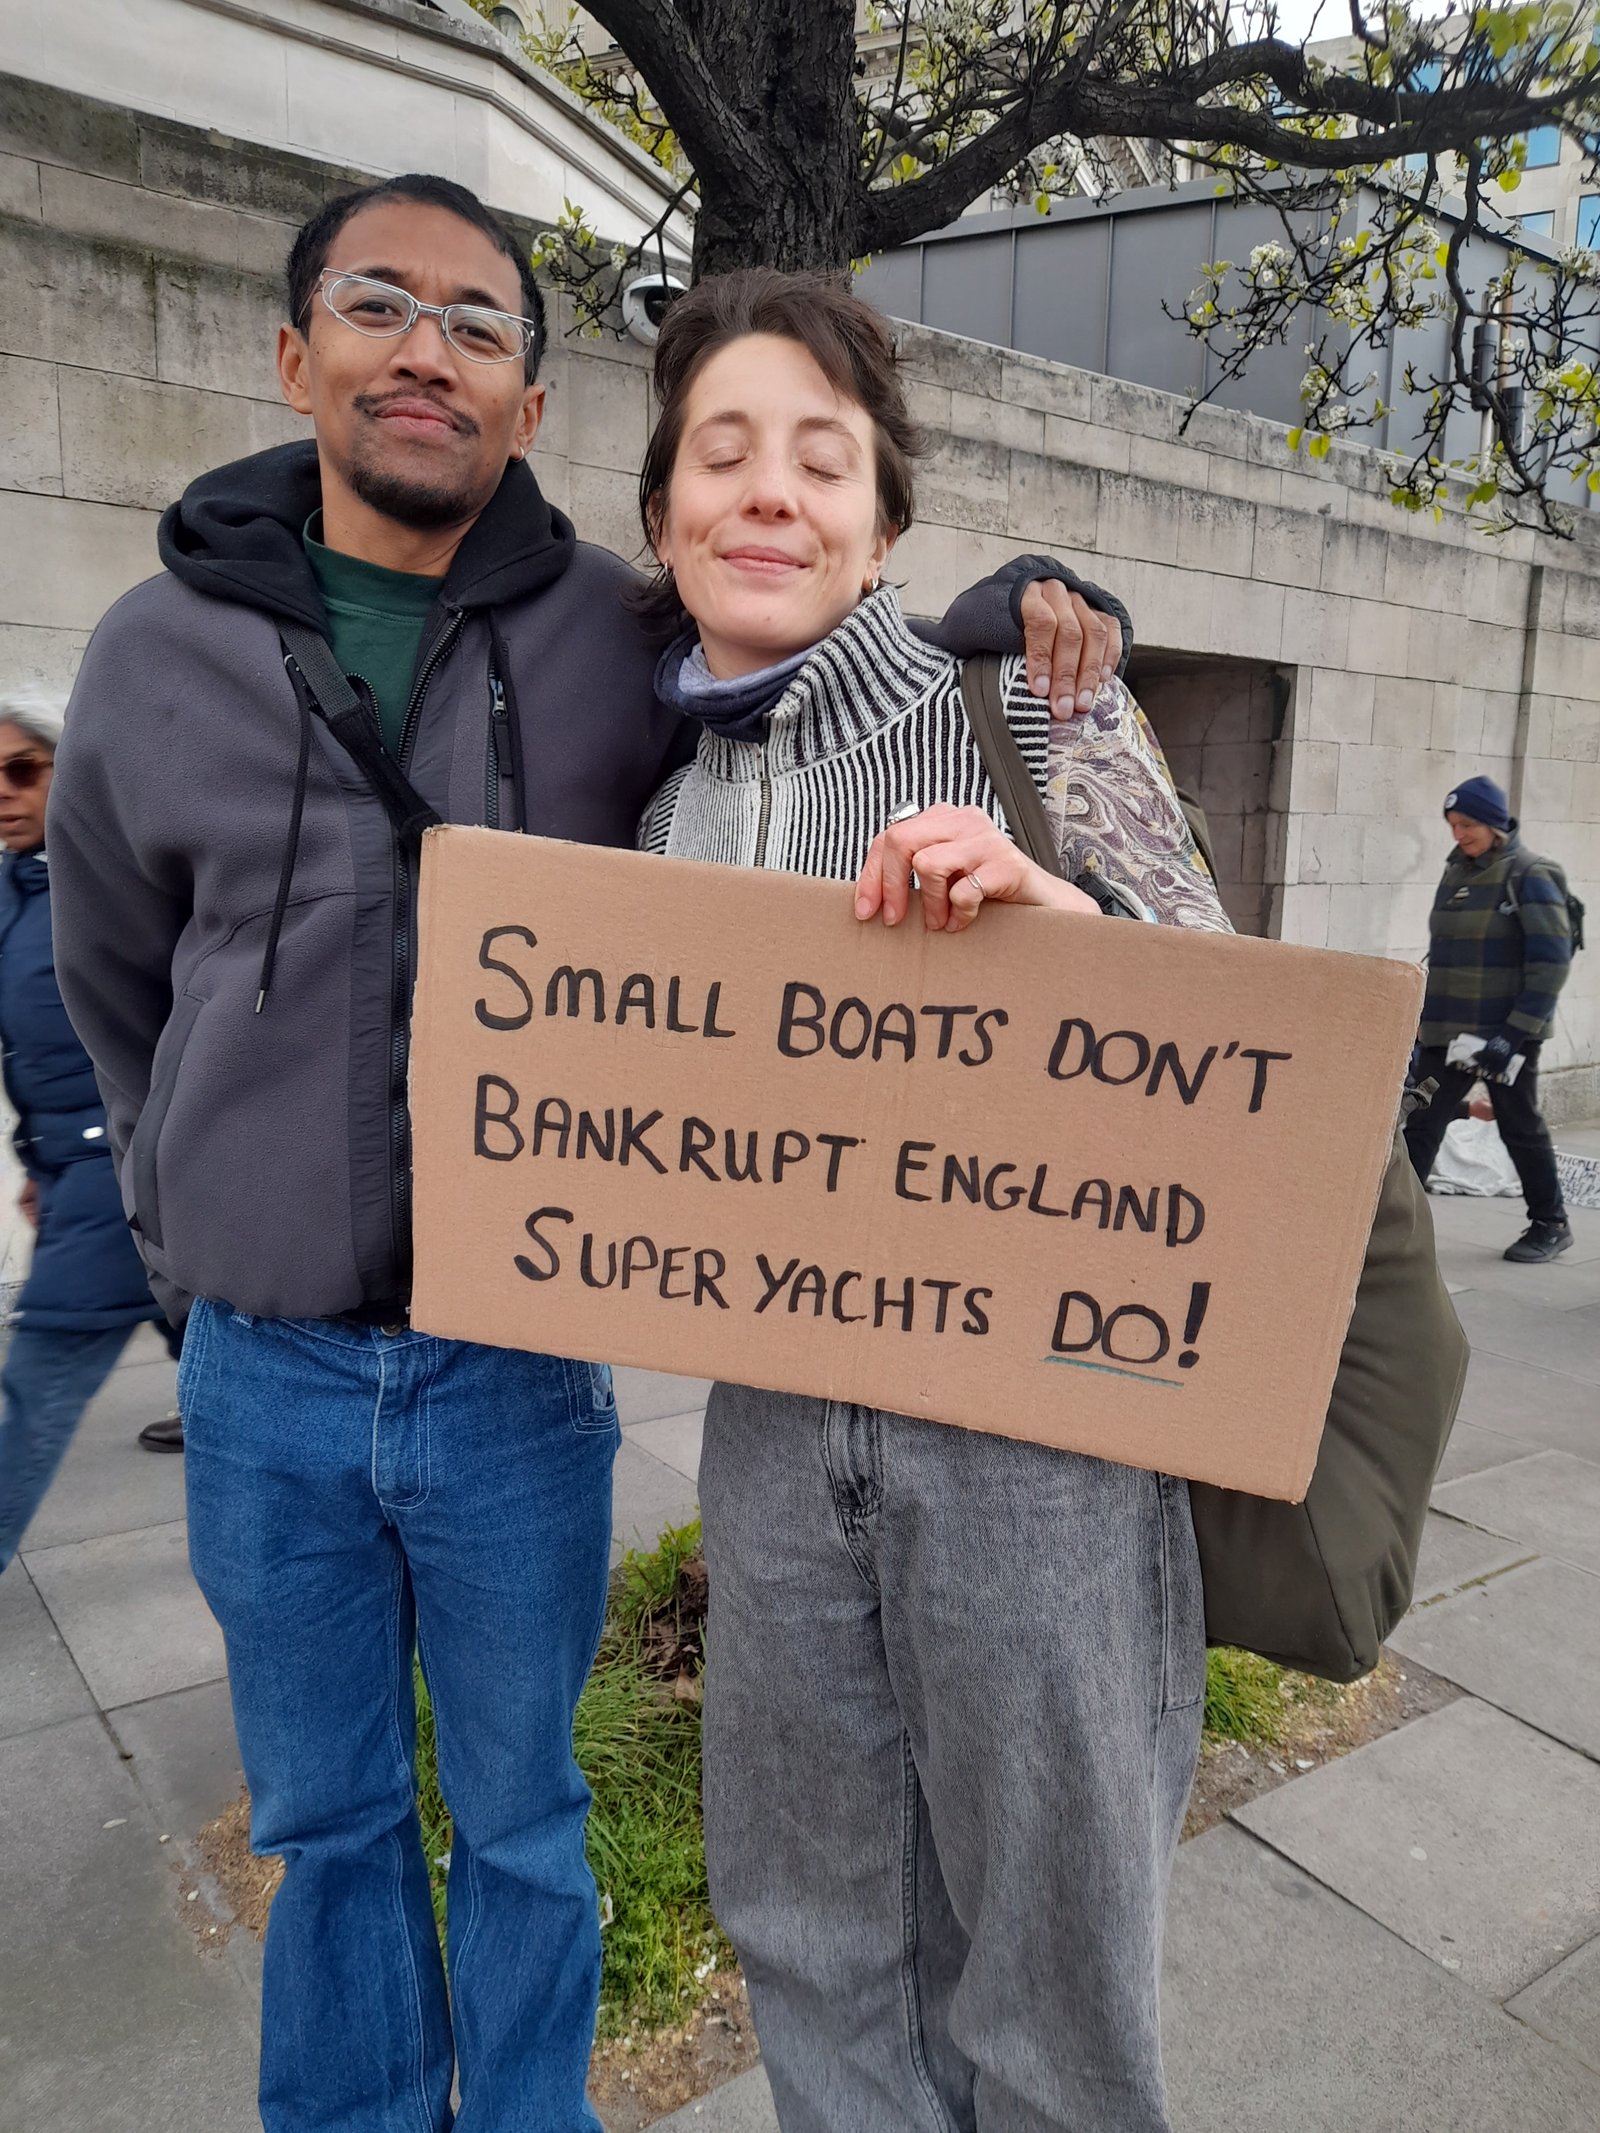 SMALL BOATS DON'T
BANKRUPT ENGLAND
SUPER YACHTS DO!